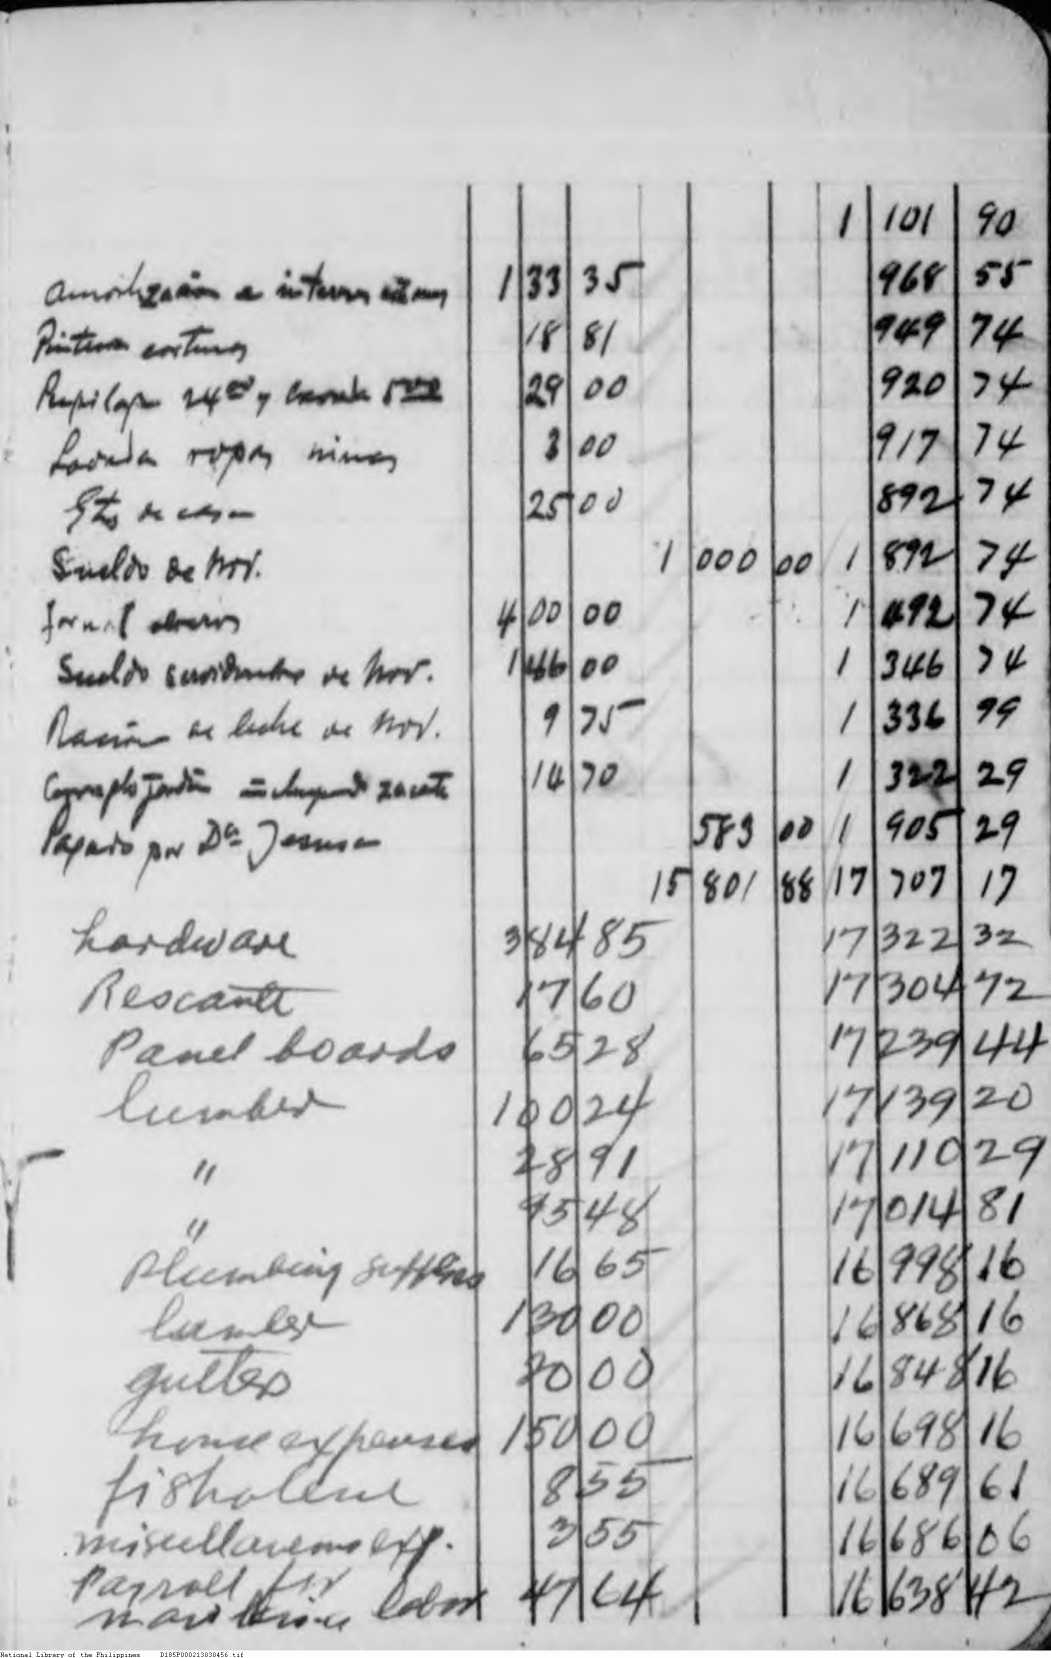 1 101 90
Amortización e interes 133 35 968 55
Pintura cortinas 18 81 949 74
24.00 y 5.00 29 00 920 74
Lavada ropas niñas 3 00 917 74
Gtos de casa 25 00 892 74
Sueldo de Nov. 1 000 00 1 892 74
Jornal obreros 400 00 1 492 74
Sueldo servidumbre de Nov. 146 00 1 346 74
Ración de leche de Nov. 9 75 1 336 99
jardín incluyendo zacate 14 70 1 322 29
Pagado por Da Jesusa 583 00 1 905 29
15 801 88 17 707 17
hardware 384 85 17 322 32
Rescante 17 60 17 304 72
Panel boards 65 28 17 239 44
lumber 100 24 17 139 20
" 28 91 17 110 29
" 95 48 17 014 81
Plumbing supplies 16 65 16 998 16
lumber 130 00 16 868 16
gutters 20 00 16 848 16
house expenses 150 00 16 698 16
fisholene 8 55 16 689 61
miscellaneous exp. 3 55 16 686 06
Payroll for
labor 47 64 16 638 42
National Library of the Philippines D185P000213838456.tif